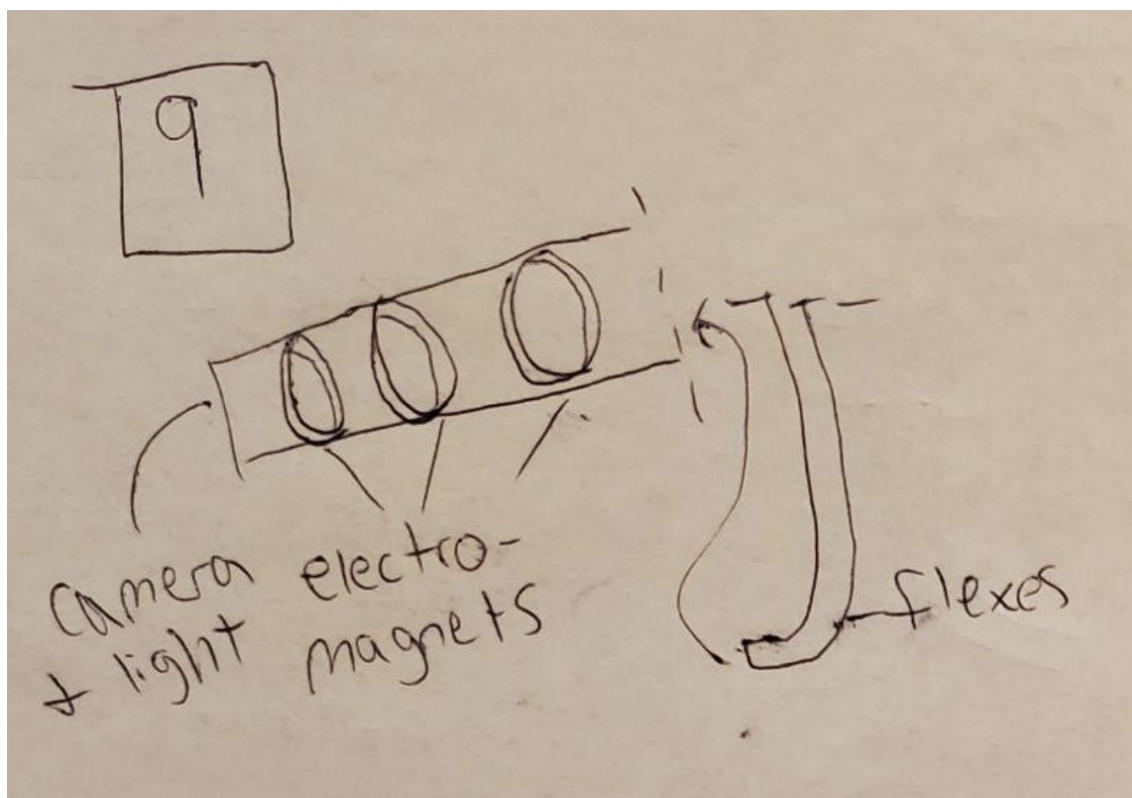 9
camera
+ light
electro-
magnets
flexes